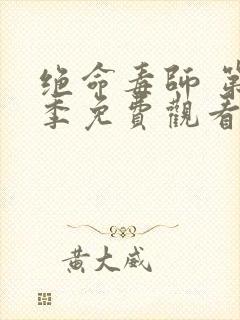 绝命毒師 第
季免費觀看
黃大威